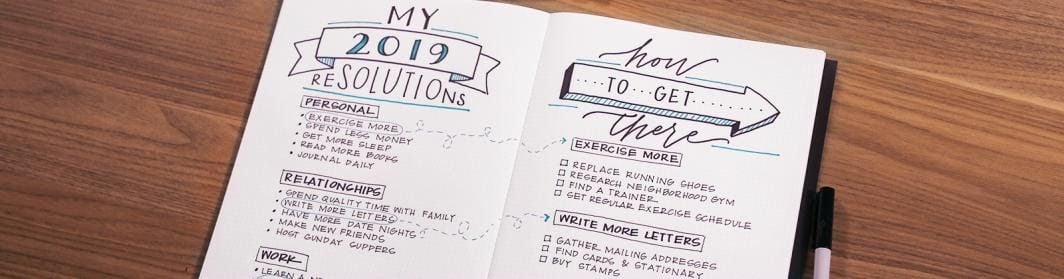 MY
2019
RESOLUTIONS
PERSONAL
• EXERCISE MORE
• SPEND LESS MONEY
• GET MORE SLEEP
• READ MORE BOOKS
• JOURNAL DAILY
RELATIONSHIPS
• SPEND QUALITY TIME WITH FAMILY
• WRITE MORE LETTERS
• HAVE MORE DATE NIGHTS
• MAKE NEW FRIENDS
• HOST SUNDAY SUPPERS
WORK
• LEARN A
how
TO GET
there
EXERCISE MORE
REPLACE RUNNING SHOES
RESEARCH NEIGHBORHOOD GYM
FIND A TRAINER
SET REGULAR EXERCISE SCHEDULE
WRITE MORE LETTERS
GATHER MAILING ADDRESSES
FIND CARDS & STATIONARY
BUY STAMPS